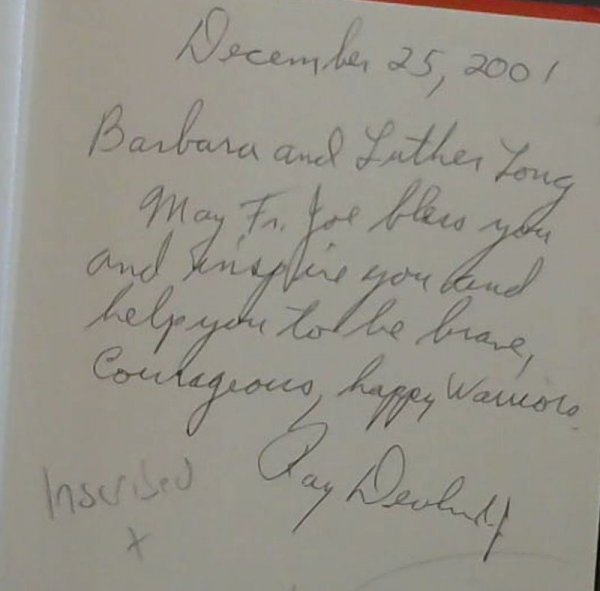 December 25, 2001
Barbara and Luther Long
May Fr. Joe bless you
and inspire you and
help you to be brave,
Courageous, happy Warriors.
Ray
Inscribed
x